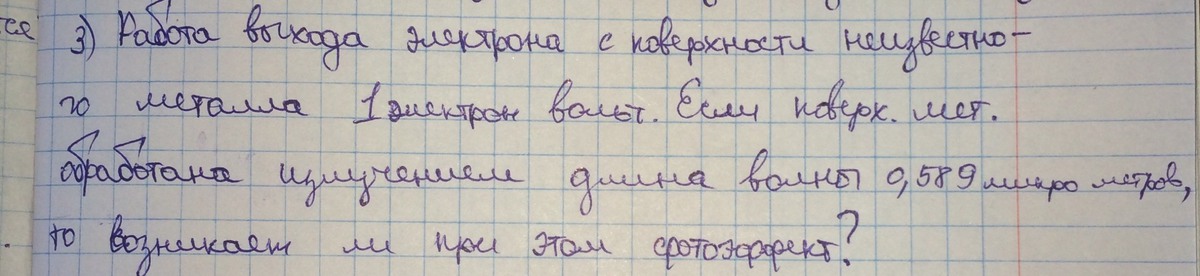 ся 3) Работа выхода электрона с поверхности неизвестно-
го металла 1 электрон вольт. Если поверх. мет.
обработана излучением длина волны 0,589 микро метров,
то возникает ли при этом фотоэффект?